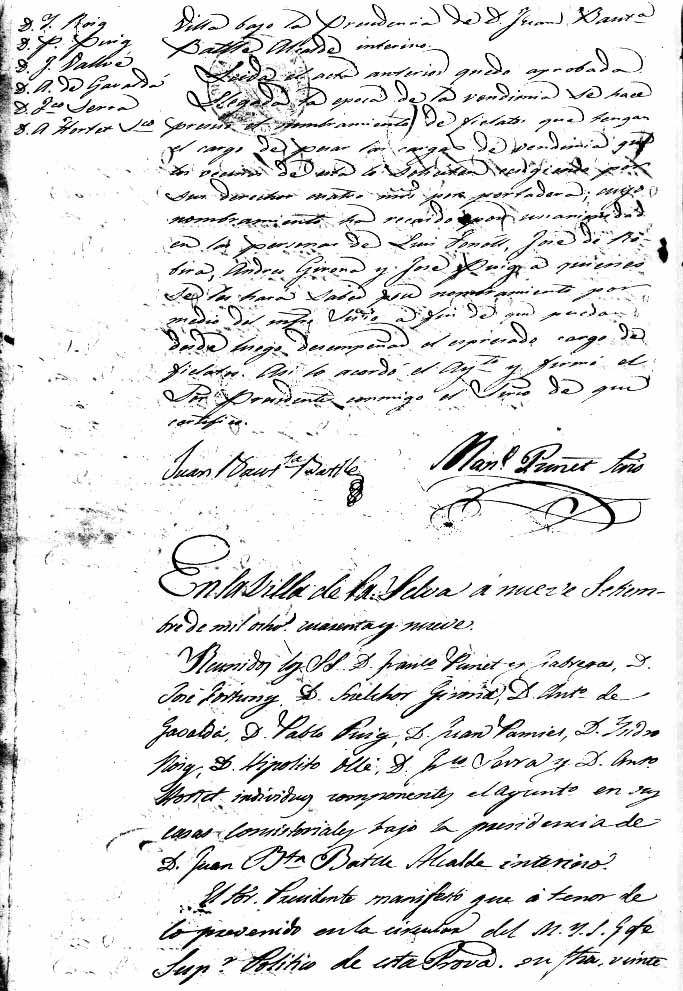 D. Y. Roig
D. P. Puig
D. J. Vallvé
D. A. de Gavaldá
D. Jco Serra
D. A Hortet Sco
Villa bajo la Presidencia de D. Juan Bauta
Batlle Alcalde interino.
Leida el acta anterior quedo aprobada
Llegada la epoca de la vendimia se hace
preciso el nombramiento de fielatos que tengan
el cargo de pesar las cargas de vendimia que
los vecinos de esta lo soliciten exigiendo por
sus derechos cuatro mrs por portadera, cuyo
nombramiento ha recaido por unanimidad
en las personas de Luis Fonoll, José de Ro-
bira, Andres Girona y José Puig a quienes
se les hará saber su nombramiento por
medio del infro Srio a fin de que puedan
desde luego desempeñar el espresado cargo de
fielatos. Asi lo acordó el Aynto y firmó el
Sor Presidente conmigo el Srio de que
certifico.
Juan Bauta Batlle
Manl Puñet Srio
En la Villa de la Selva á nueve Setiem-
bre de mil ocho. cuarenta y nueve.
Reunidos los SS. D. Franco Puñet y Fabregas, D.
José Fortuny D. Melchor Girona, D. Anto. de
Gavaldá, D. Pablo Puig, D. Juan Pamies, D. Ysidro
Roig, D. Hipolito Ollé, D. Jco Serra y D. Anto.
Hortet individuos componentes el ayunto en sus
casas Consistoriales bajo la presidencia de
D. Juan Bta Batlle Alcalde interino.
El Sor. Presidente manifestó que á tenor de
lo prevenido en la circular del M. Y. S. Gefe
Supr Politico de esta Prova. su fha. veinte